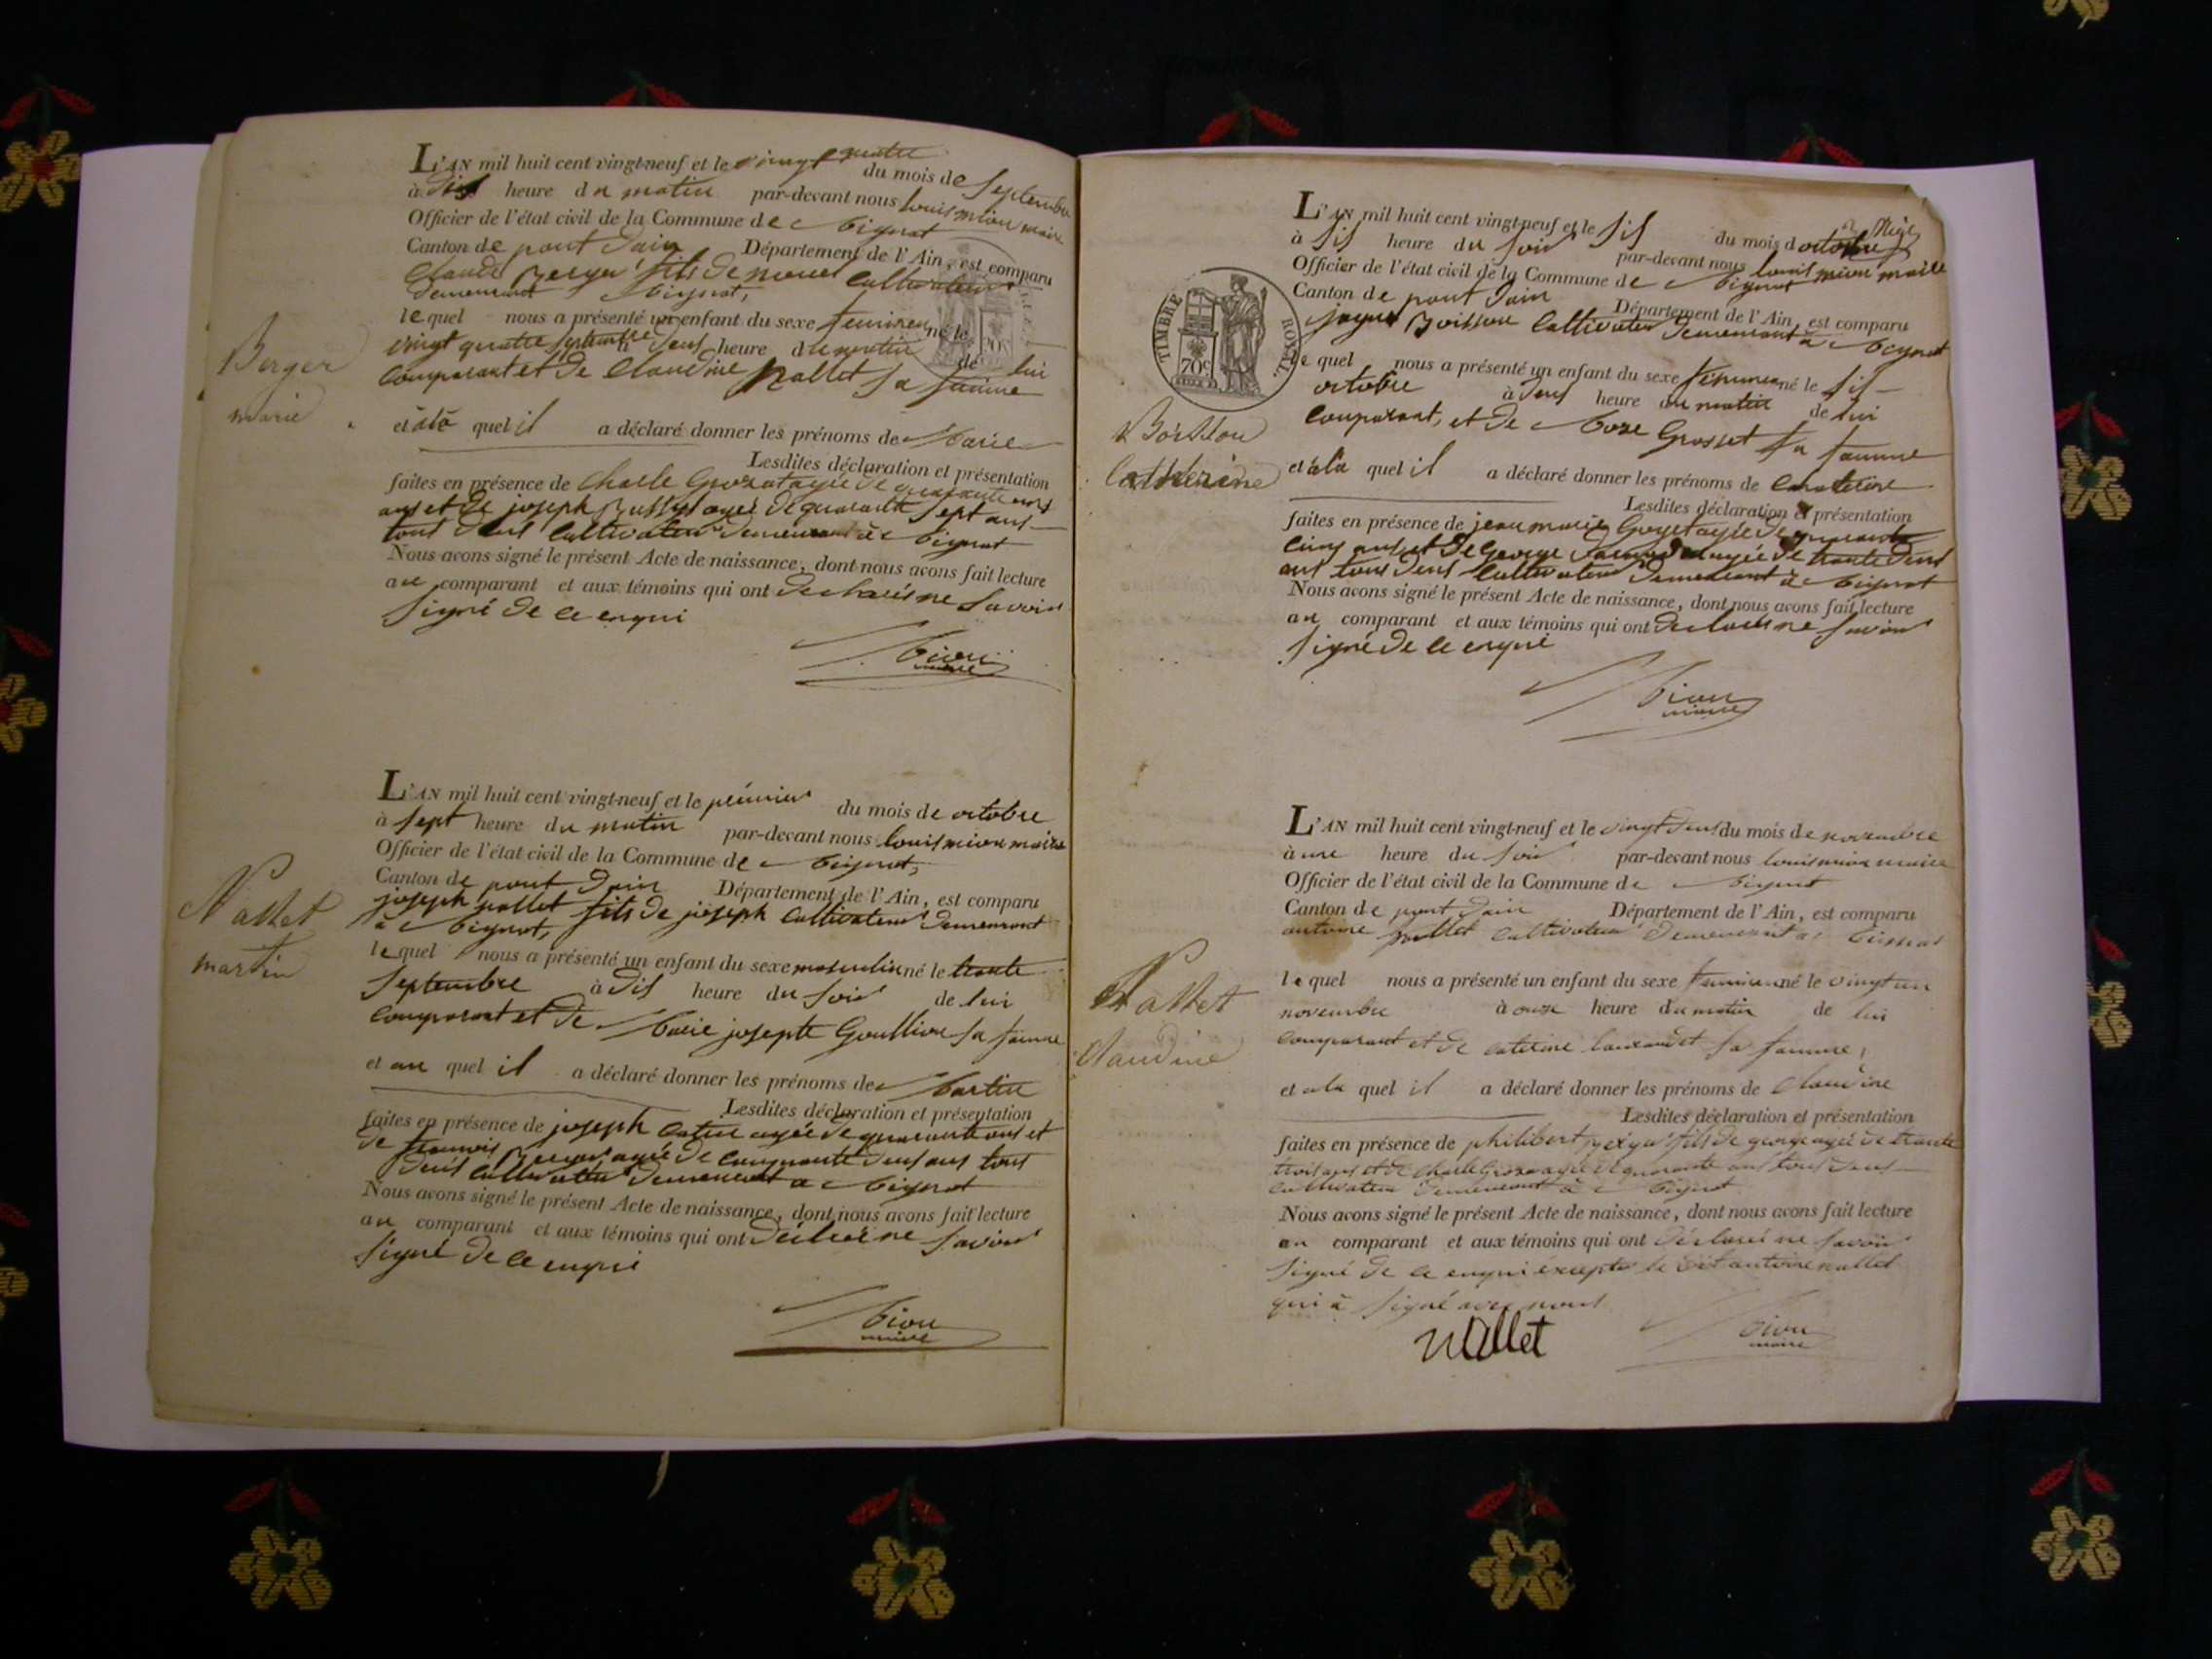 L'AN mil huit cent vingt-neuf et le vingt quatre du mois de septembre
à heure du matin par-devant nous louis mion maire
Officier de l'état civil de la Commune de
Canton de pont dain Département de l'Ain, est comparu
Claude fils de cultivateur
demeurant
lequel nous a présenté un enfant du sexe feminen né le
vingt quatre septembre à deus heure du matin de lui
comparant et de Claudine Nallet sa famme
Berger
marie
et à la quel il a déclaré donner les prénoms de Marie
Lesdites déclaration et présentation
faites en présence de Charle agée de quarante
ans et de joseph agée de quarante sept ans
tout deus cultivateur demeurant à
Nous avons signé le présent Acte de naissance, dont nous avons fait lecture
au comparant et aux témoins qui ont declarés ne savoir
signé de ce enqui
Mion
maire
L'AN mil huit cent vingt-neuf et le premier du mois de octobre
à sept heure du matin par-devant nous louis mion maire
Officier de l'état civil de la Commune de
Canton de pont dain Département de l'Ain, est comparu
joseph nallet fils de joseph cultivateur demeurant
à
Nallet
martin
lequel nous a présenté un enfant du sexe masculin né le trante
septembre à dis heure du soir de lui
comparant et de Marie josepte Goullion sa famme
et au quel il a déclaré donner les prénoms de Martin
Lesdites déclaration et présentation
faites en présence de joseph agée de quarante ans et
de francois agée de cinquante deus ans tous
deus cultivateur demeurant a
Nous avons signé le présent Acte de naissance, dont nous avons fait lecture
au comparant et aux témoins qui ont déclaré ne savoir
signé de ce enqui
Mion
maire
L'AN mil huit cent vingt-neuf et le sis du mois d octobre
à sis heure du soir par-devant nous louis mion maire
Officier de l'état civil de la Commune de
Canton de pont dain Département de l'Ain, est comparu
Boisson cultivateur demeurant à
TIMBRE ROYAL
70c
le quel nous a présenté un enfant du sexe né le sis
octobre à deus heure du matin de lui
comparant, et de Grosset sa famme
Boisson
Catherine
et à la quel il a déclaré donner les prénoms de
Lesdites déclaration et présentation
faites en présence de jean marie Goyet agée de quarante
cinq ans et de George agée de trante deus
ans tous deus cultivateur demeurant à
Nous avons signé le présent Acte de naissance, dont nous avons fait lecture
au comparant et aux témoins qui ont declarés ne savoir
signé de ce enqui
Mion
maire
L'AN mil huit cent vingt-neuf et le vingt deus du mois de novembre
à une heure du soir par-devant nous louis mion maire
Officier de l'état civil de la Commune de
Canton de pont dain Département de l'Ain, est comparu
antoine nallet cultivateur demeurant a
le quel nous a présenté un enfant du sexe feminen né le vingt un
novembre à onze heure du matin de lui
Nallet
Claudine
comparant et de caterine sa famme,
et a la quel il a déclaré donner les prénoms de Claudine
Lesdites déclaration et présentation
faites en présence de philibert fils de george agée de trante
trois ans et de charle agée de quarante ans tous deus
cultivateur demeurant à
Nous avons signé le présent Acte de naissance, dont nous avons fait lecture
au comparant et aux témoins qui ont déclaré ne savoir
signé de ce enqui excepté le dit antoine nallet
qui à signé avec nous
nallet
Mion
maire